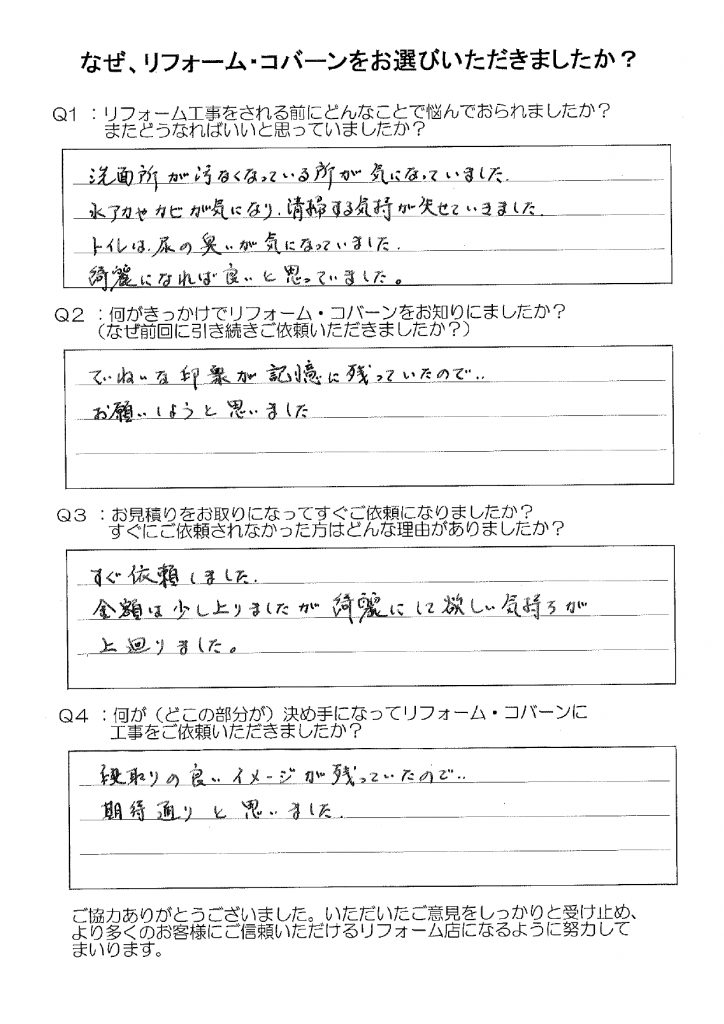 なぜ、リフォーム・コバーンをお選びいただきましたか？
Q1 ：リフォーム工事をされる前にどんなことで悩んでおられましたか？
またどうなればいいと思っていましたか？
洗面所が汚なくなっている所が気になっていました.
水アカやカビが気になり、清掃する気持が失せていきました.
トイレは、尿の臭いが気になっていました.
綺麗になれば良いと思っていました。
Q2 ：何がきっかけでリフォーム・コバーンをお知りにましたか？
（なぜ前回に引き続きご依頼いただきましたか？）
ていねいな印象が記憶に残っていたので..
お願いしようと思いました
Q3 ：お見積りをお取りになってすぐご依頼になりましたか？
すぐにご依頼されなかった方はどんな理由がありましたか？
すぐ依頼しました.
金額は少し上りましたが綺麗にして欲しい気持ちが
上廻りました。
Q4 ：何が（どこの部分が）決め手になってリフォーム・コバーンに
工事をご依頼いただきましたか？
段取りの良いイメージが残っていたので..
期待通りと思いました.
ご協力ありがとうございました。いただいたご意見をしっかりと受け止め、
より多くのお客様にご信頼いただけるリフォーム店になるように努力して
まいります。